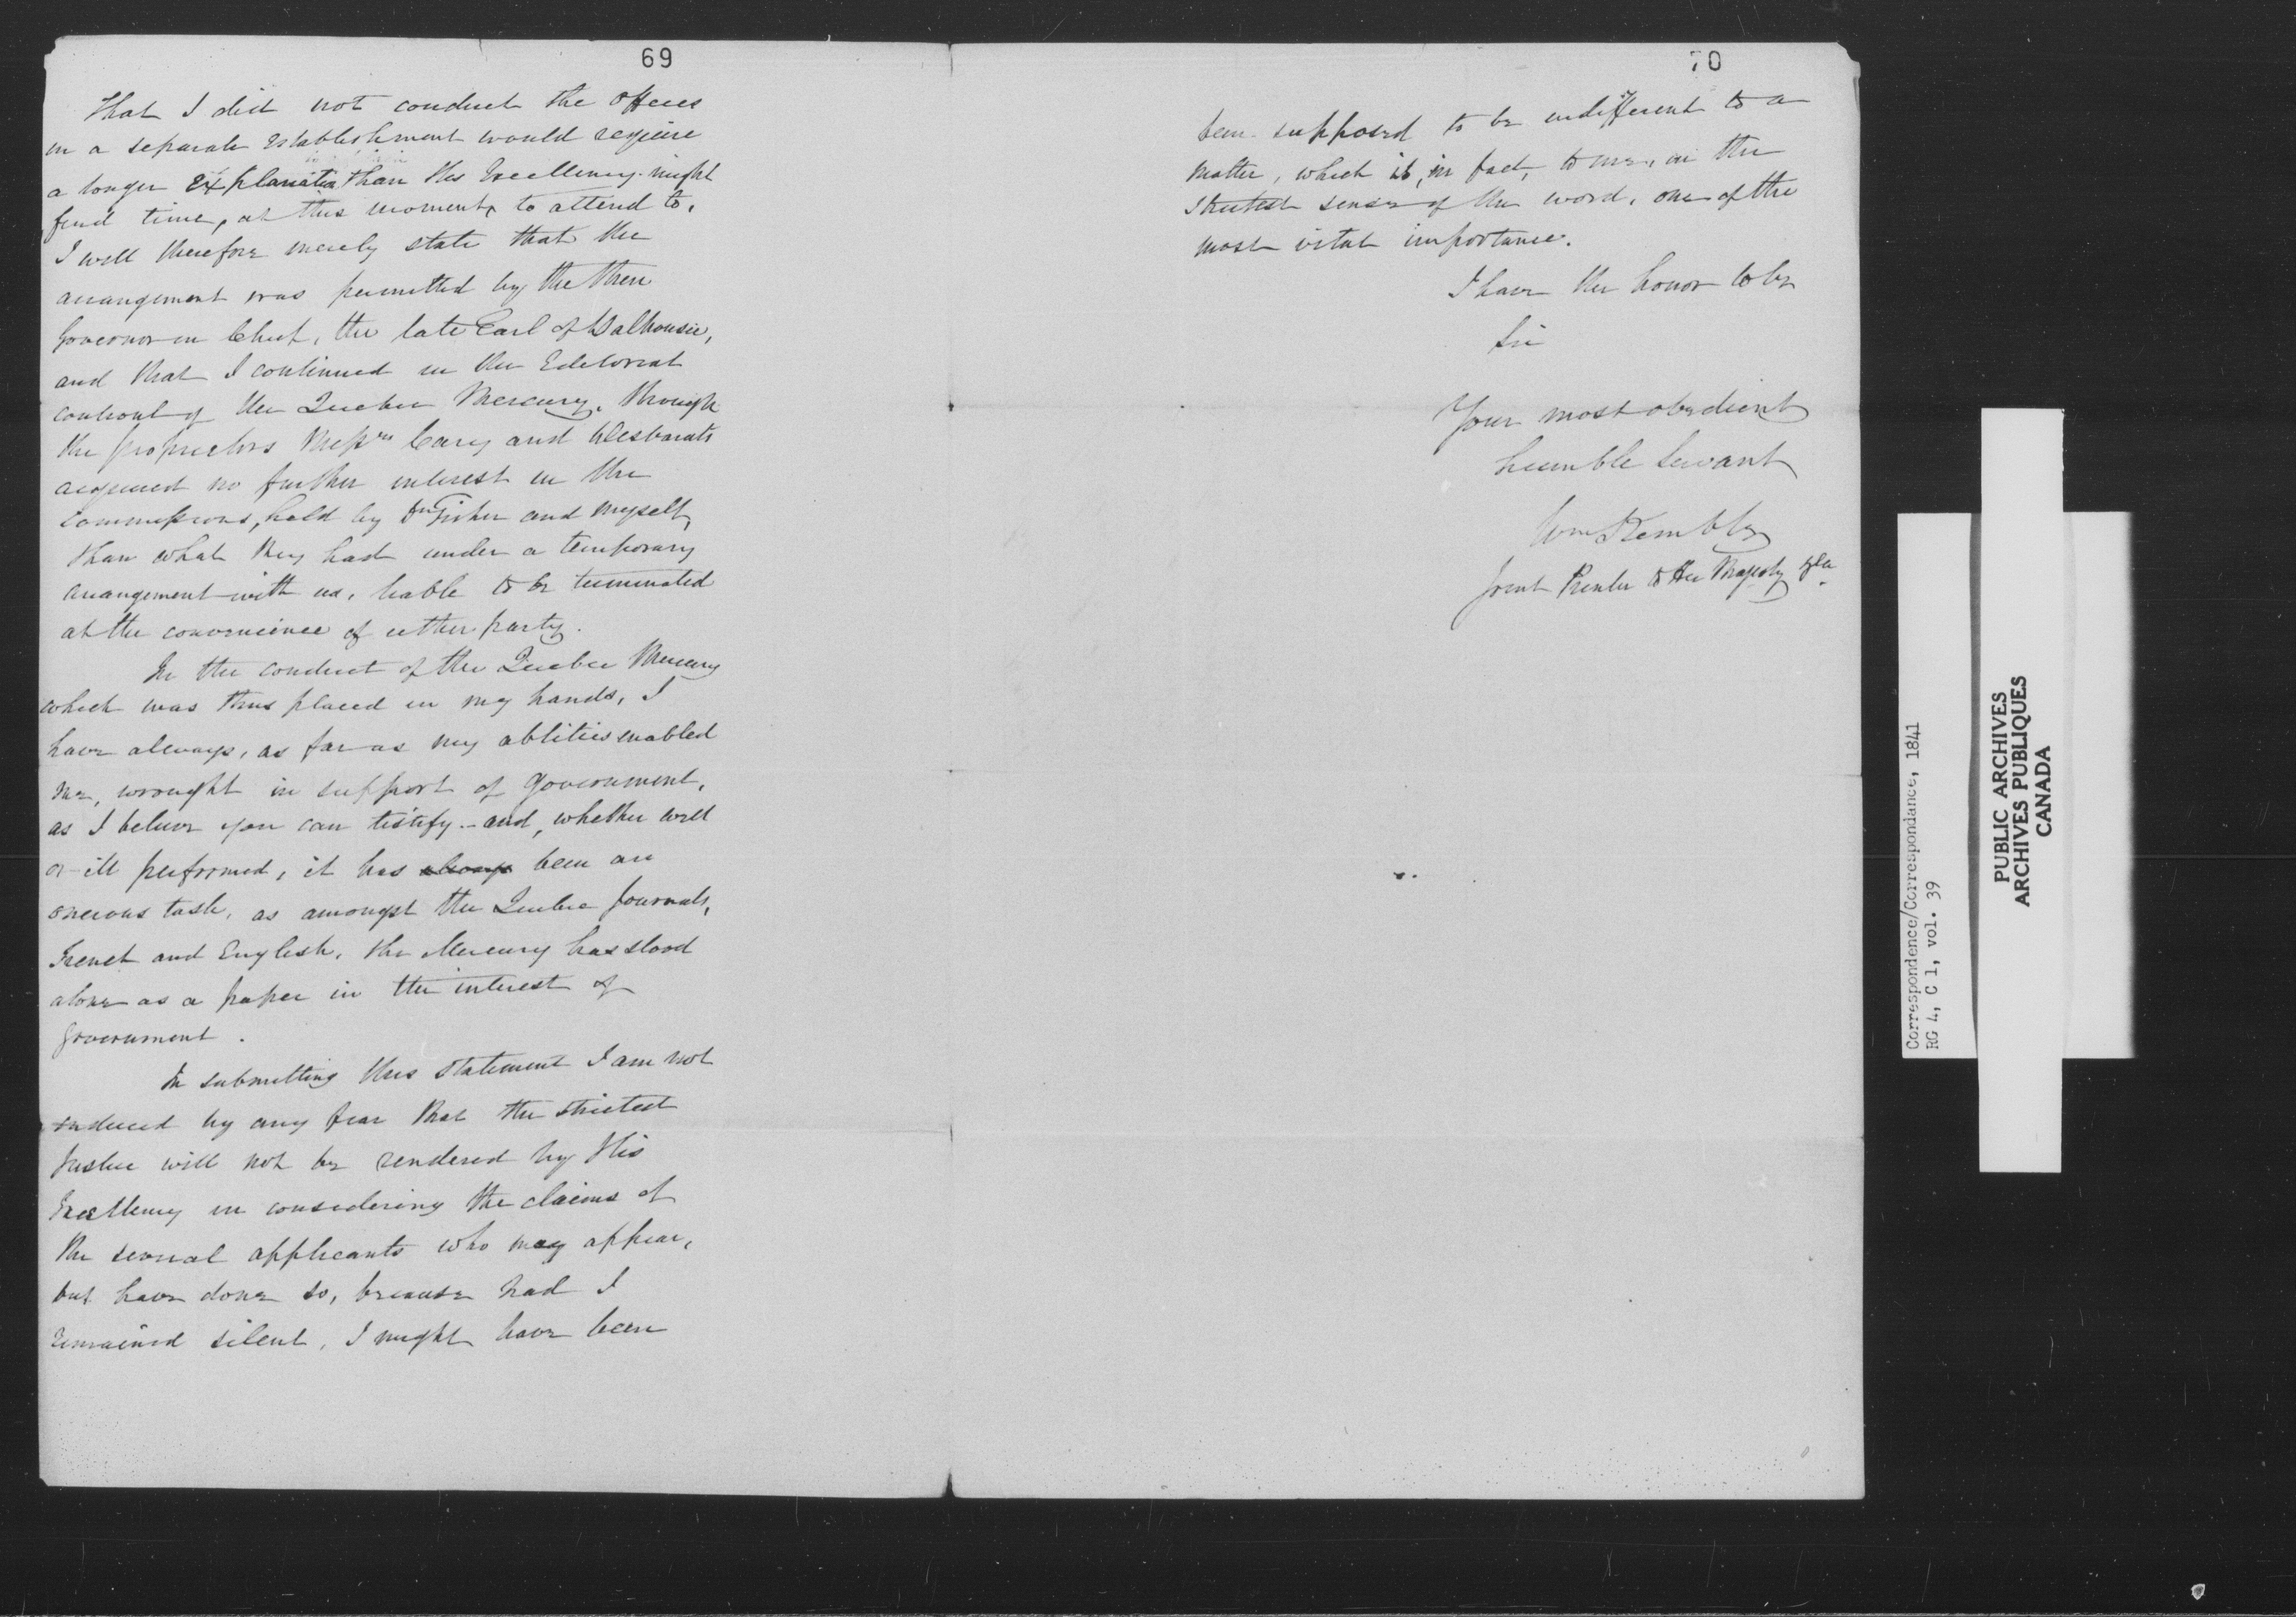 69
That I did not conduct the offices
in a separate establishment would require
a longer explanation than His Excellency might
find time, at this moment, to attend to.
I will therefore merely state that the
arrangement was permitted by the then
Governor in Chief, the late Earl of Dalhousie,
and that I continued in the Editorial
controul of the Quebec Mercury, through
the proprietors Messrs Cary and Desbarats
acquired no further interest in the
commissions, held by Dr Fisher and myself,
than what they had under a temporary
arrangement with us, liable to be terminated
at the convenience of either party.
In the conduct of the Quebec Mercury
which was thus placed in my hands, I
have always, as far as my ablities enabled
me, wrought in support of Government,
as I believe you can testify - and, whether well
or ill performed, it has always been an
onerous task, as amongst the Quebec Journals,
French and English, the Mercury has stood
alone as a paper in the interest of
Government.
In submitting this statement I am not
induced by any fear that the strictest
Justice will not be rendered by His
Excellency in considering the claims of
the several applicants who may appear,
but have done so, because had I
remained silent, I might have been
70
been supposed to be indifferent to a
matter, which is, in fact, to me, in the
strictest sense of the word, one of the
most vital importance.
I have the honor to be
Sir
Your most obedient
humble Servant
Wm Kemble
Joint Printer to Her Majesty &ca.
Correspondence/Correspondance, 1841
RG 4, C 1, vol. 39
PUBLIC ARCHIVES
ARCHIVES PUBLIQUES
CANADA